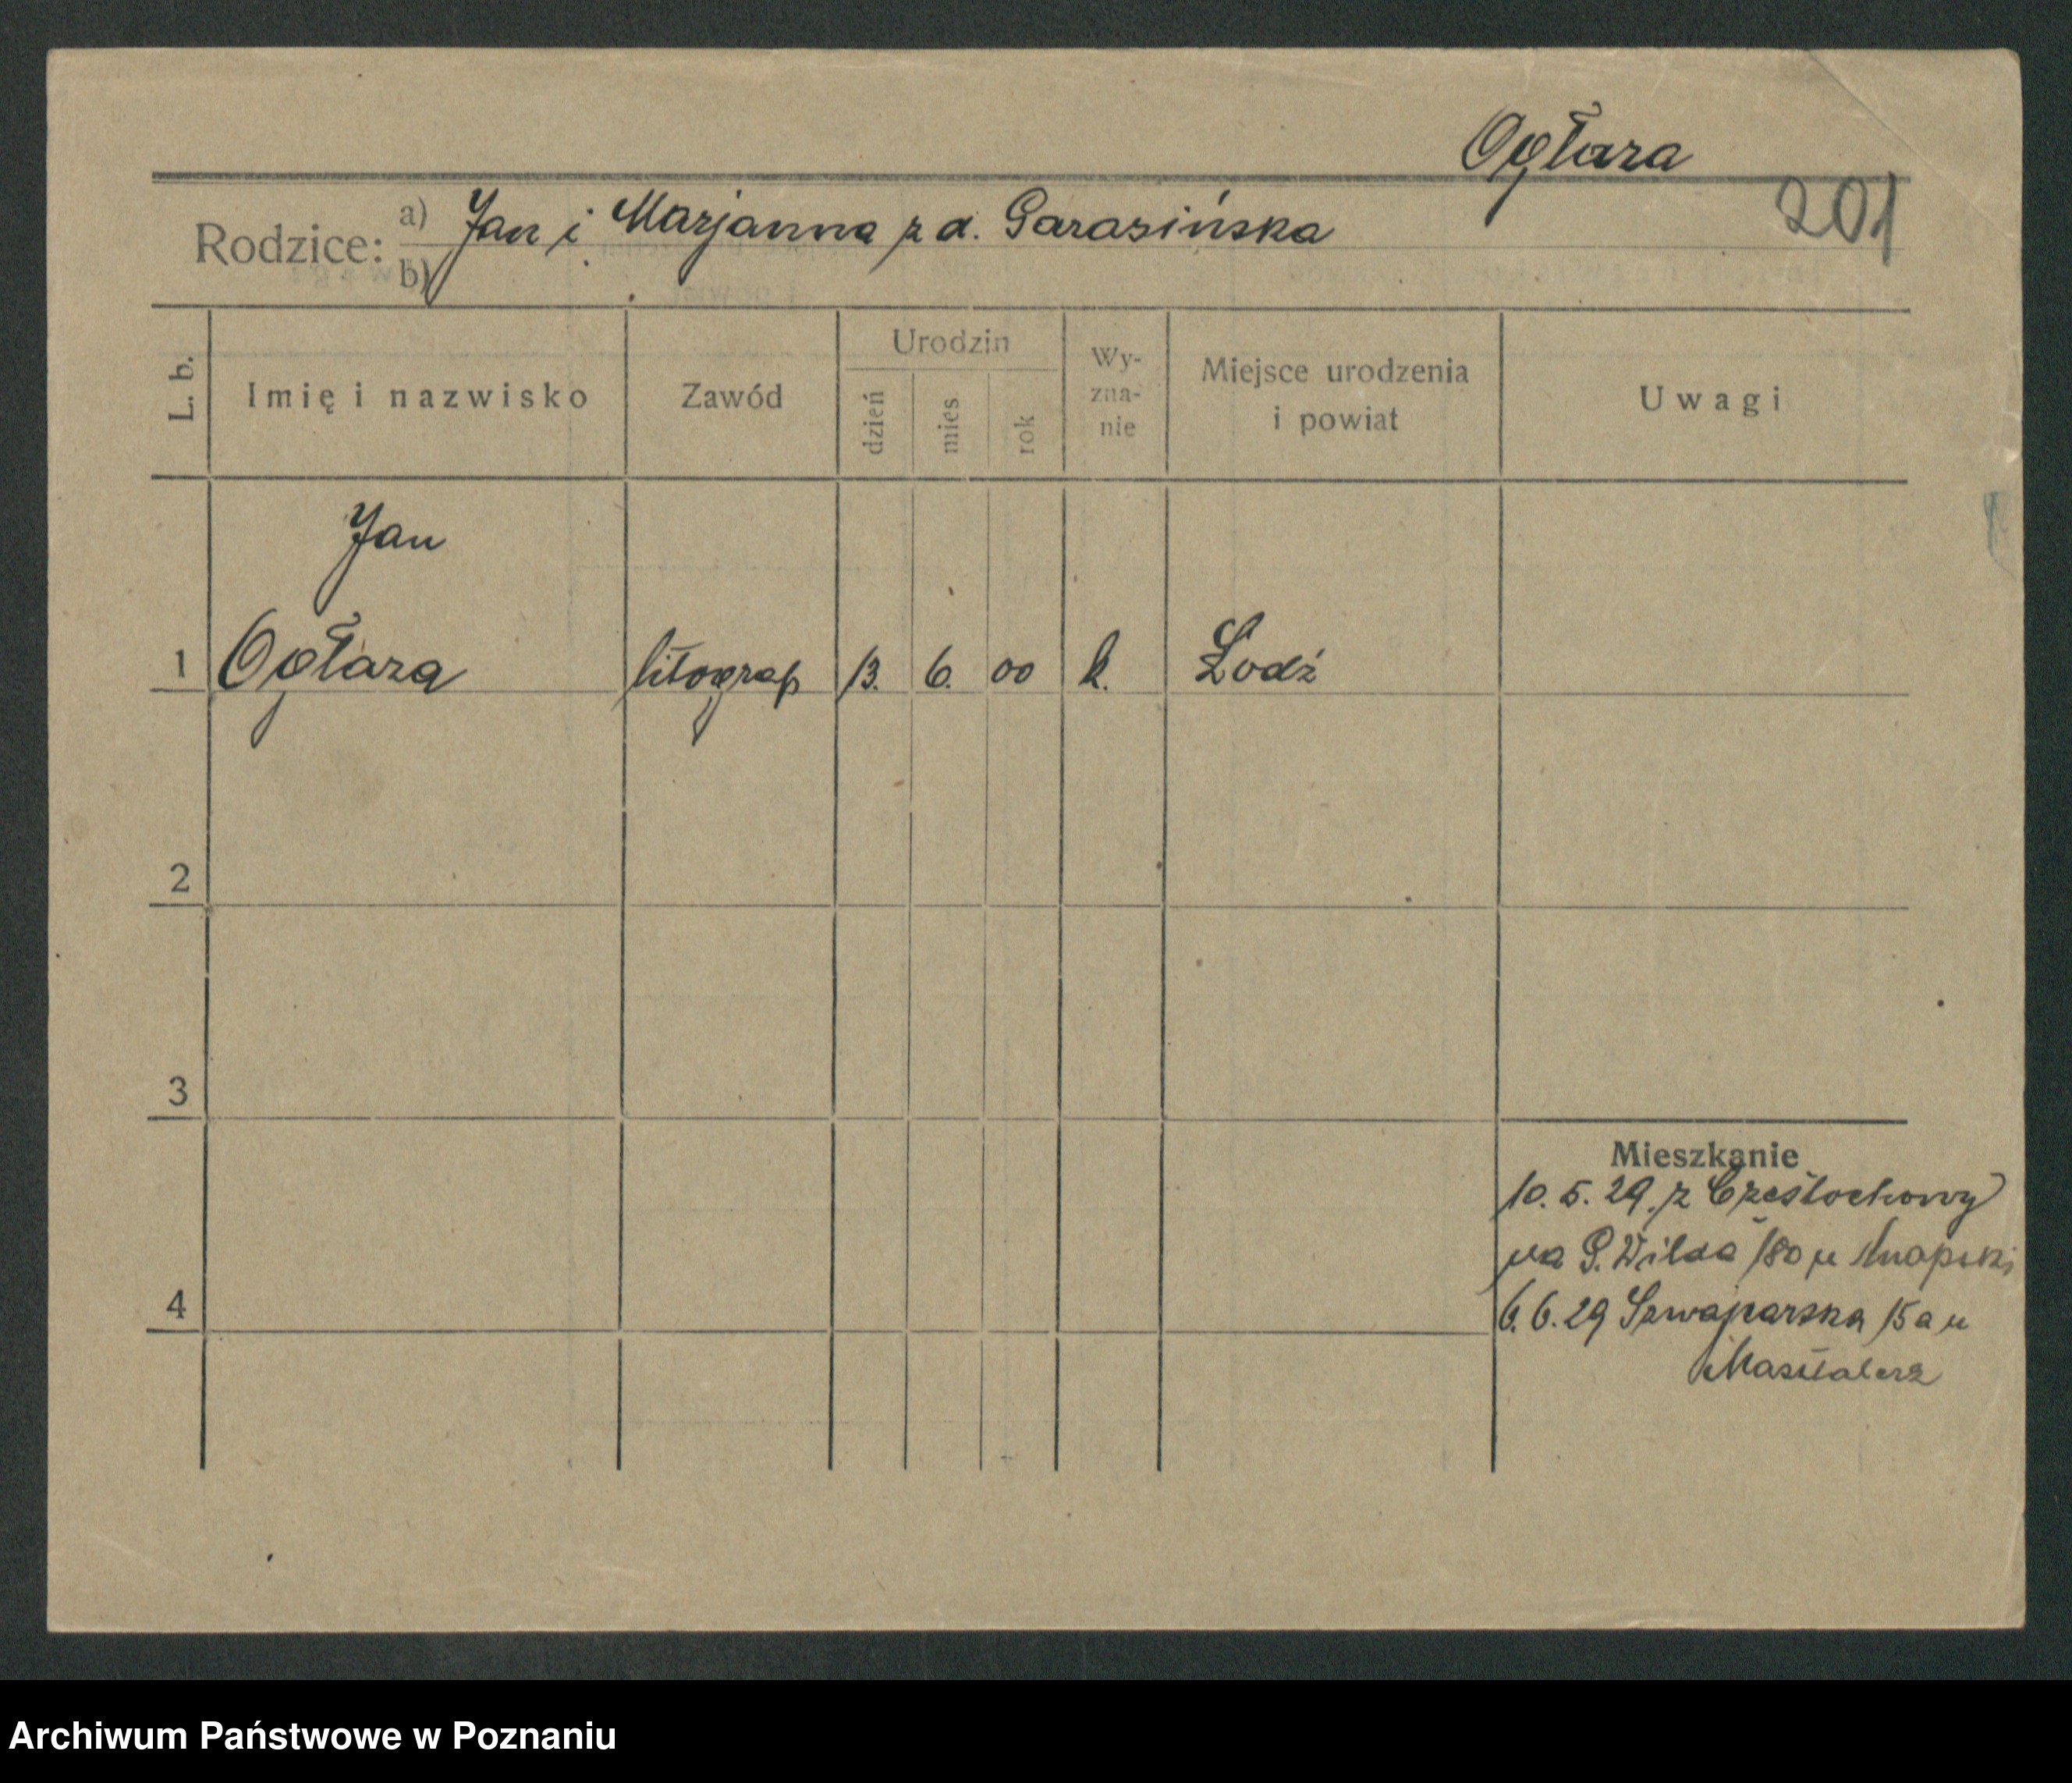 Ogłaza
201
Rodzice: a) Jan i Marjanna z d. Garasińska
b)
L. b. Imię i nazwisko Zawód Urodzin dzień mies rok Wy-zna-nie Miejsce urodzenia i powiat Uwagi
Jan
1 Ogłaza litograf 13. 6. 00 k. Łodź
2
3
Mieszkanie
10. 5. 29. z Częstochowy
na G. Wilda 180 u
4
6. 6. 29 Szwajcarska 15a u
Masztalerz
Archiwum Państwowe w Poznaniu